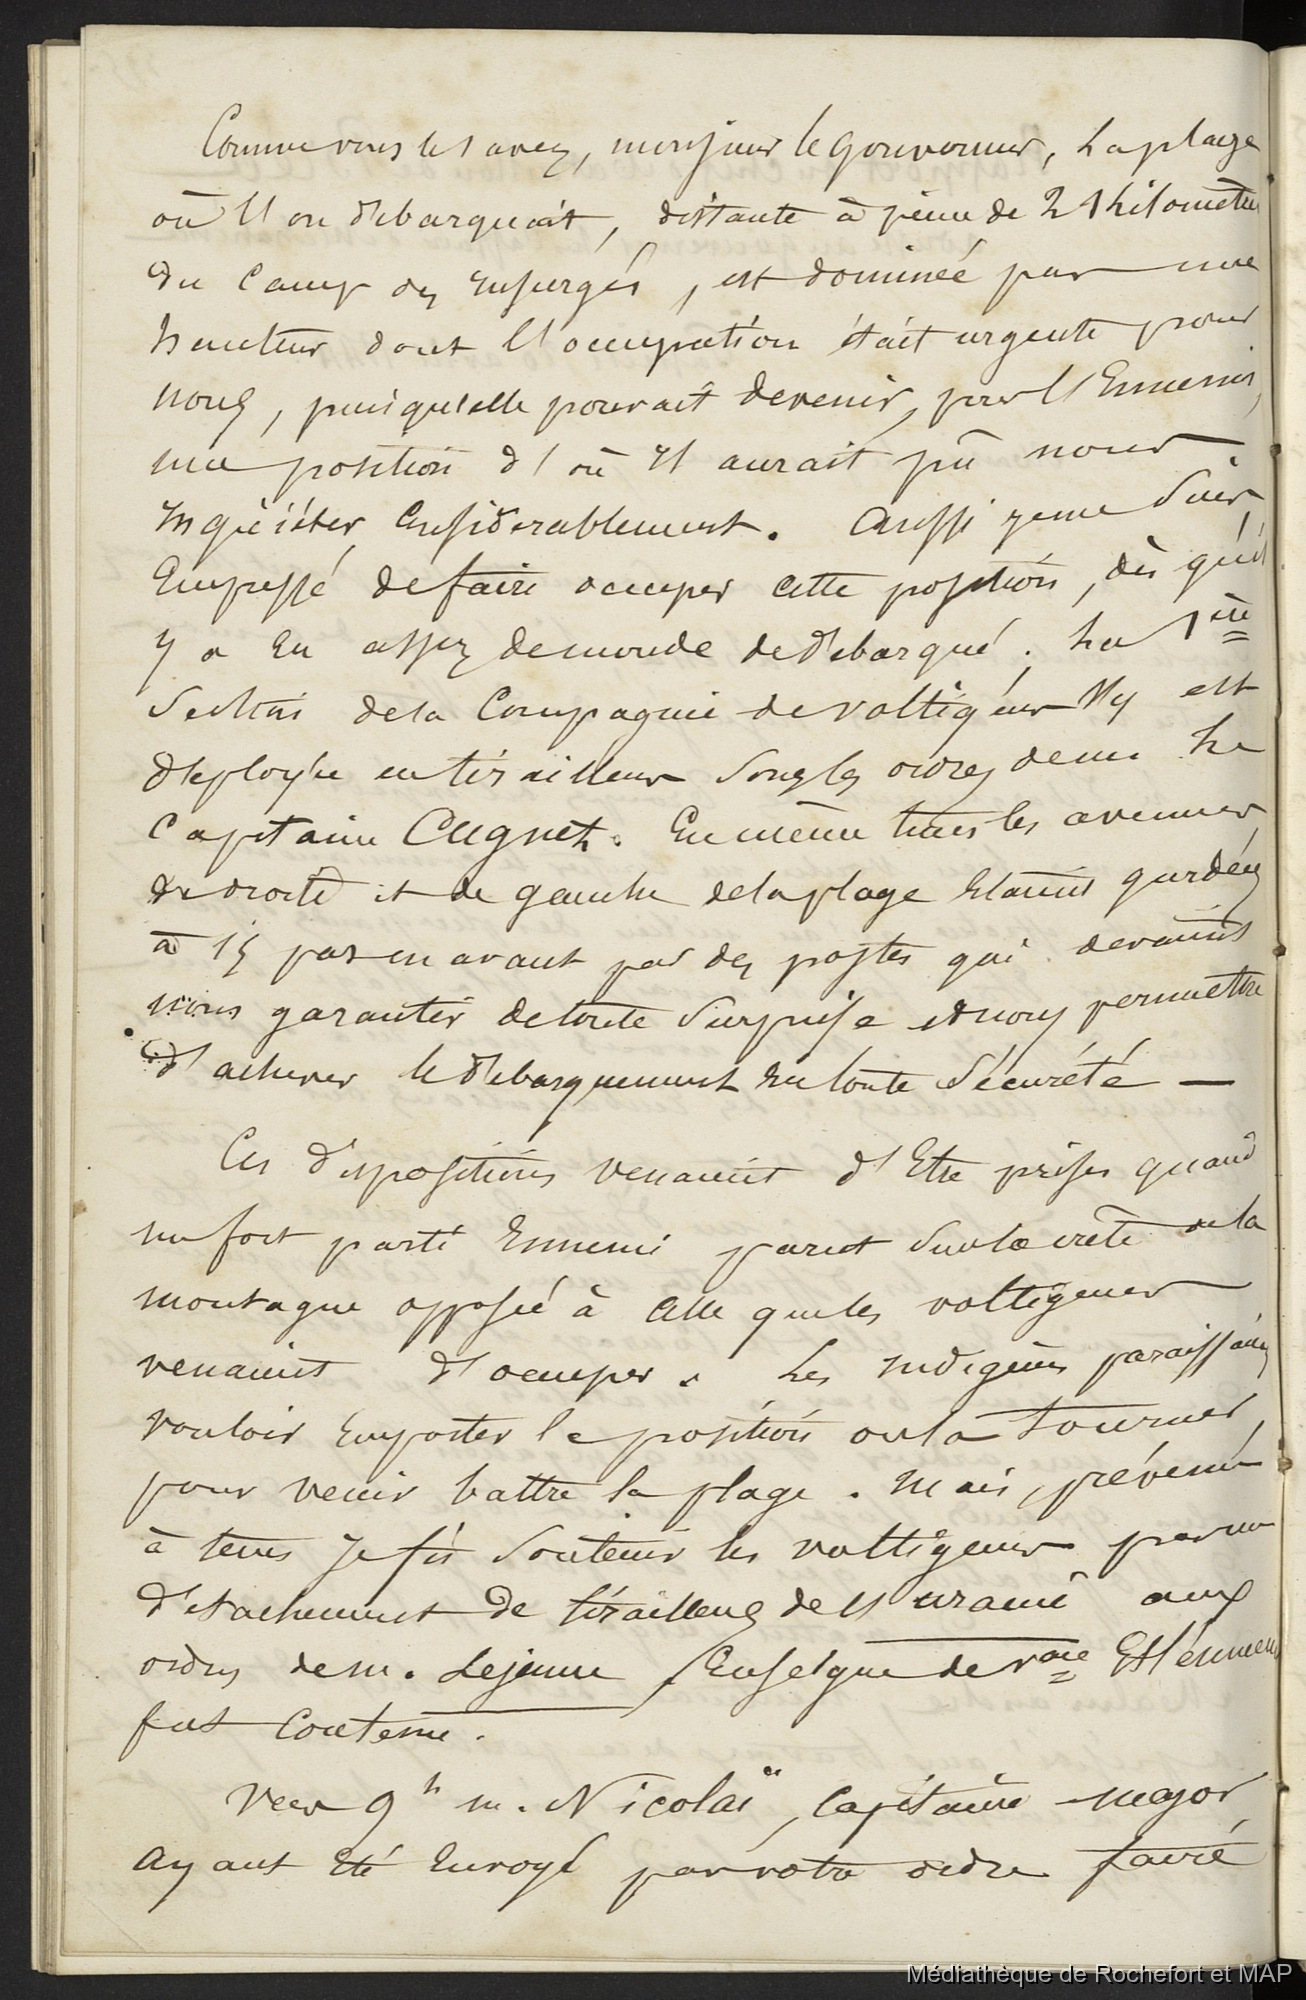 Comme vous le savez, monsieur le gouverneur, La plage
où l'on debarquait, distante à peine de 2 kilomètres
du Camp des insurgés, est dominée par une
hauteur dont l'occupation était urgente pour
nous, puisqu'elle pouvait devenir, pour l'Ennemi,
une position d'où il aurait pû nous
inquiéter considerablement. Aussi je me suis
Empressé de faire occuper cette position, dès qu'il
y a eu assez de monde de debarqué. La 1ère
Section de la Compagnie de voltigeurs n'y est
deployée en tirailleurs sous les ordres de mr Le
Capitaine Cugnet. En même tems les avenues
de droite et de gauche de la plage étaient gardées
à 15 pas en avant par des postes qui devaient
nous garantir de toute surprise et nous permettre
d'achever le debarquement en toute sécurité —
Ces dispositions venaient d'Etre prises quand
un fort parti Ennemi parut sur la crète de la
montagne opposée à celle que les voltigeurs
venaient d'occuper. Les indigènes paraissaient
vouloir emporter la position ou la tourner,
pour venir battre la plage. Mais, prévenu
à tems je fis soutenir les voltigeurs par un
détachement de tirailleurs de l'uranie aux
ordres de m. Lejeune, Enseigne de vau Et l'ennemi
fut contenu.
Vers 9h m. Nicolaï, Capitaine major
ayant été envoyé par votre ordre